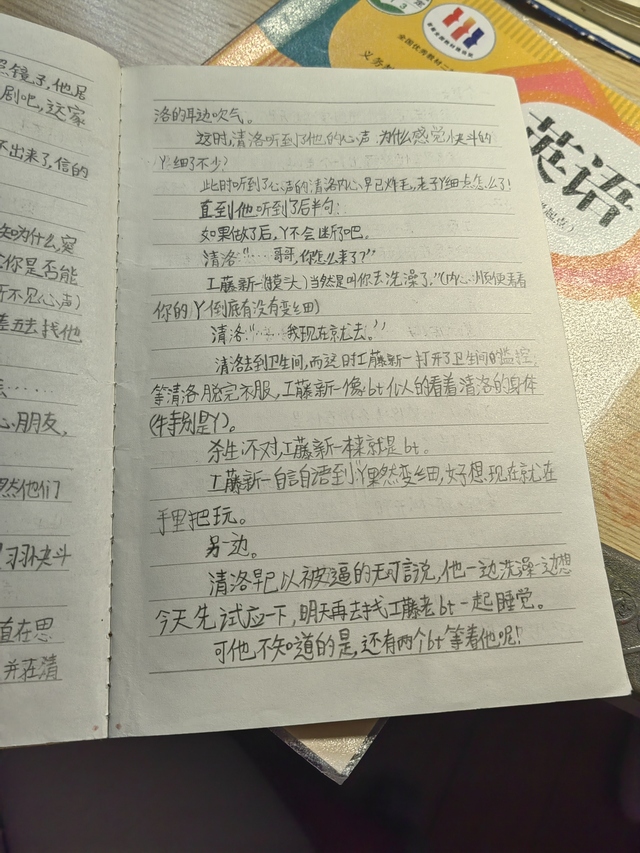 照镜子,他居
剧吧,这家
不出来了,信的
知为什么,宠
你是否能
听不见心声)
去找他
心朋友,
然他们
羽快斗
直在思
并在清
洛的耳边吹气。
这时,清洛听到了他的心声.为什么感觉小快斗的
Y细了不少?
此时听到了心声的清洛内心早已炸毛,老子Y细点怎么了!
直到他听到了后半句:
如果做了后,Y不会断了吧。
清洛"……哥哥,你怎么来了?"
工藤新一"(摸头)当然是叫你去洗澡了,"(内心:顺便看看
你的Y倒底有没有变细)
清洛"……我现在就去。"
清洛去到卫生间,而这时工藤新一打开了卫生间的监控,
等清洛脱完衣服,工藤新一像bt似人的看着清洛的身体
(特别是Y)。
杀生:不对,工藤新一本来就是bt。
工藤新一自言自语到:小Y果然变细,好想现在就在
手里把玩。
另一边。
清洛早已以被逼的无可言说,他一边洗澡一边想
今天先试应一下,明天再去找工藤老bt一起睡觉。
可他不知道的是,还有两个bt等着他呢!
英语
全国优秀教材二
义务教
起点)